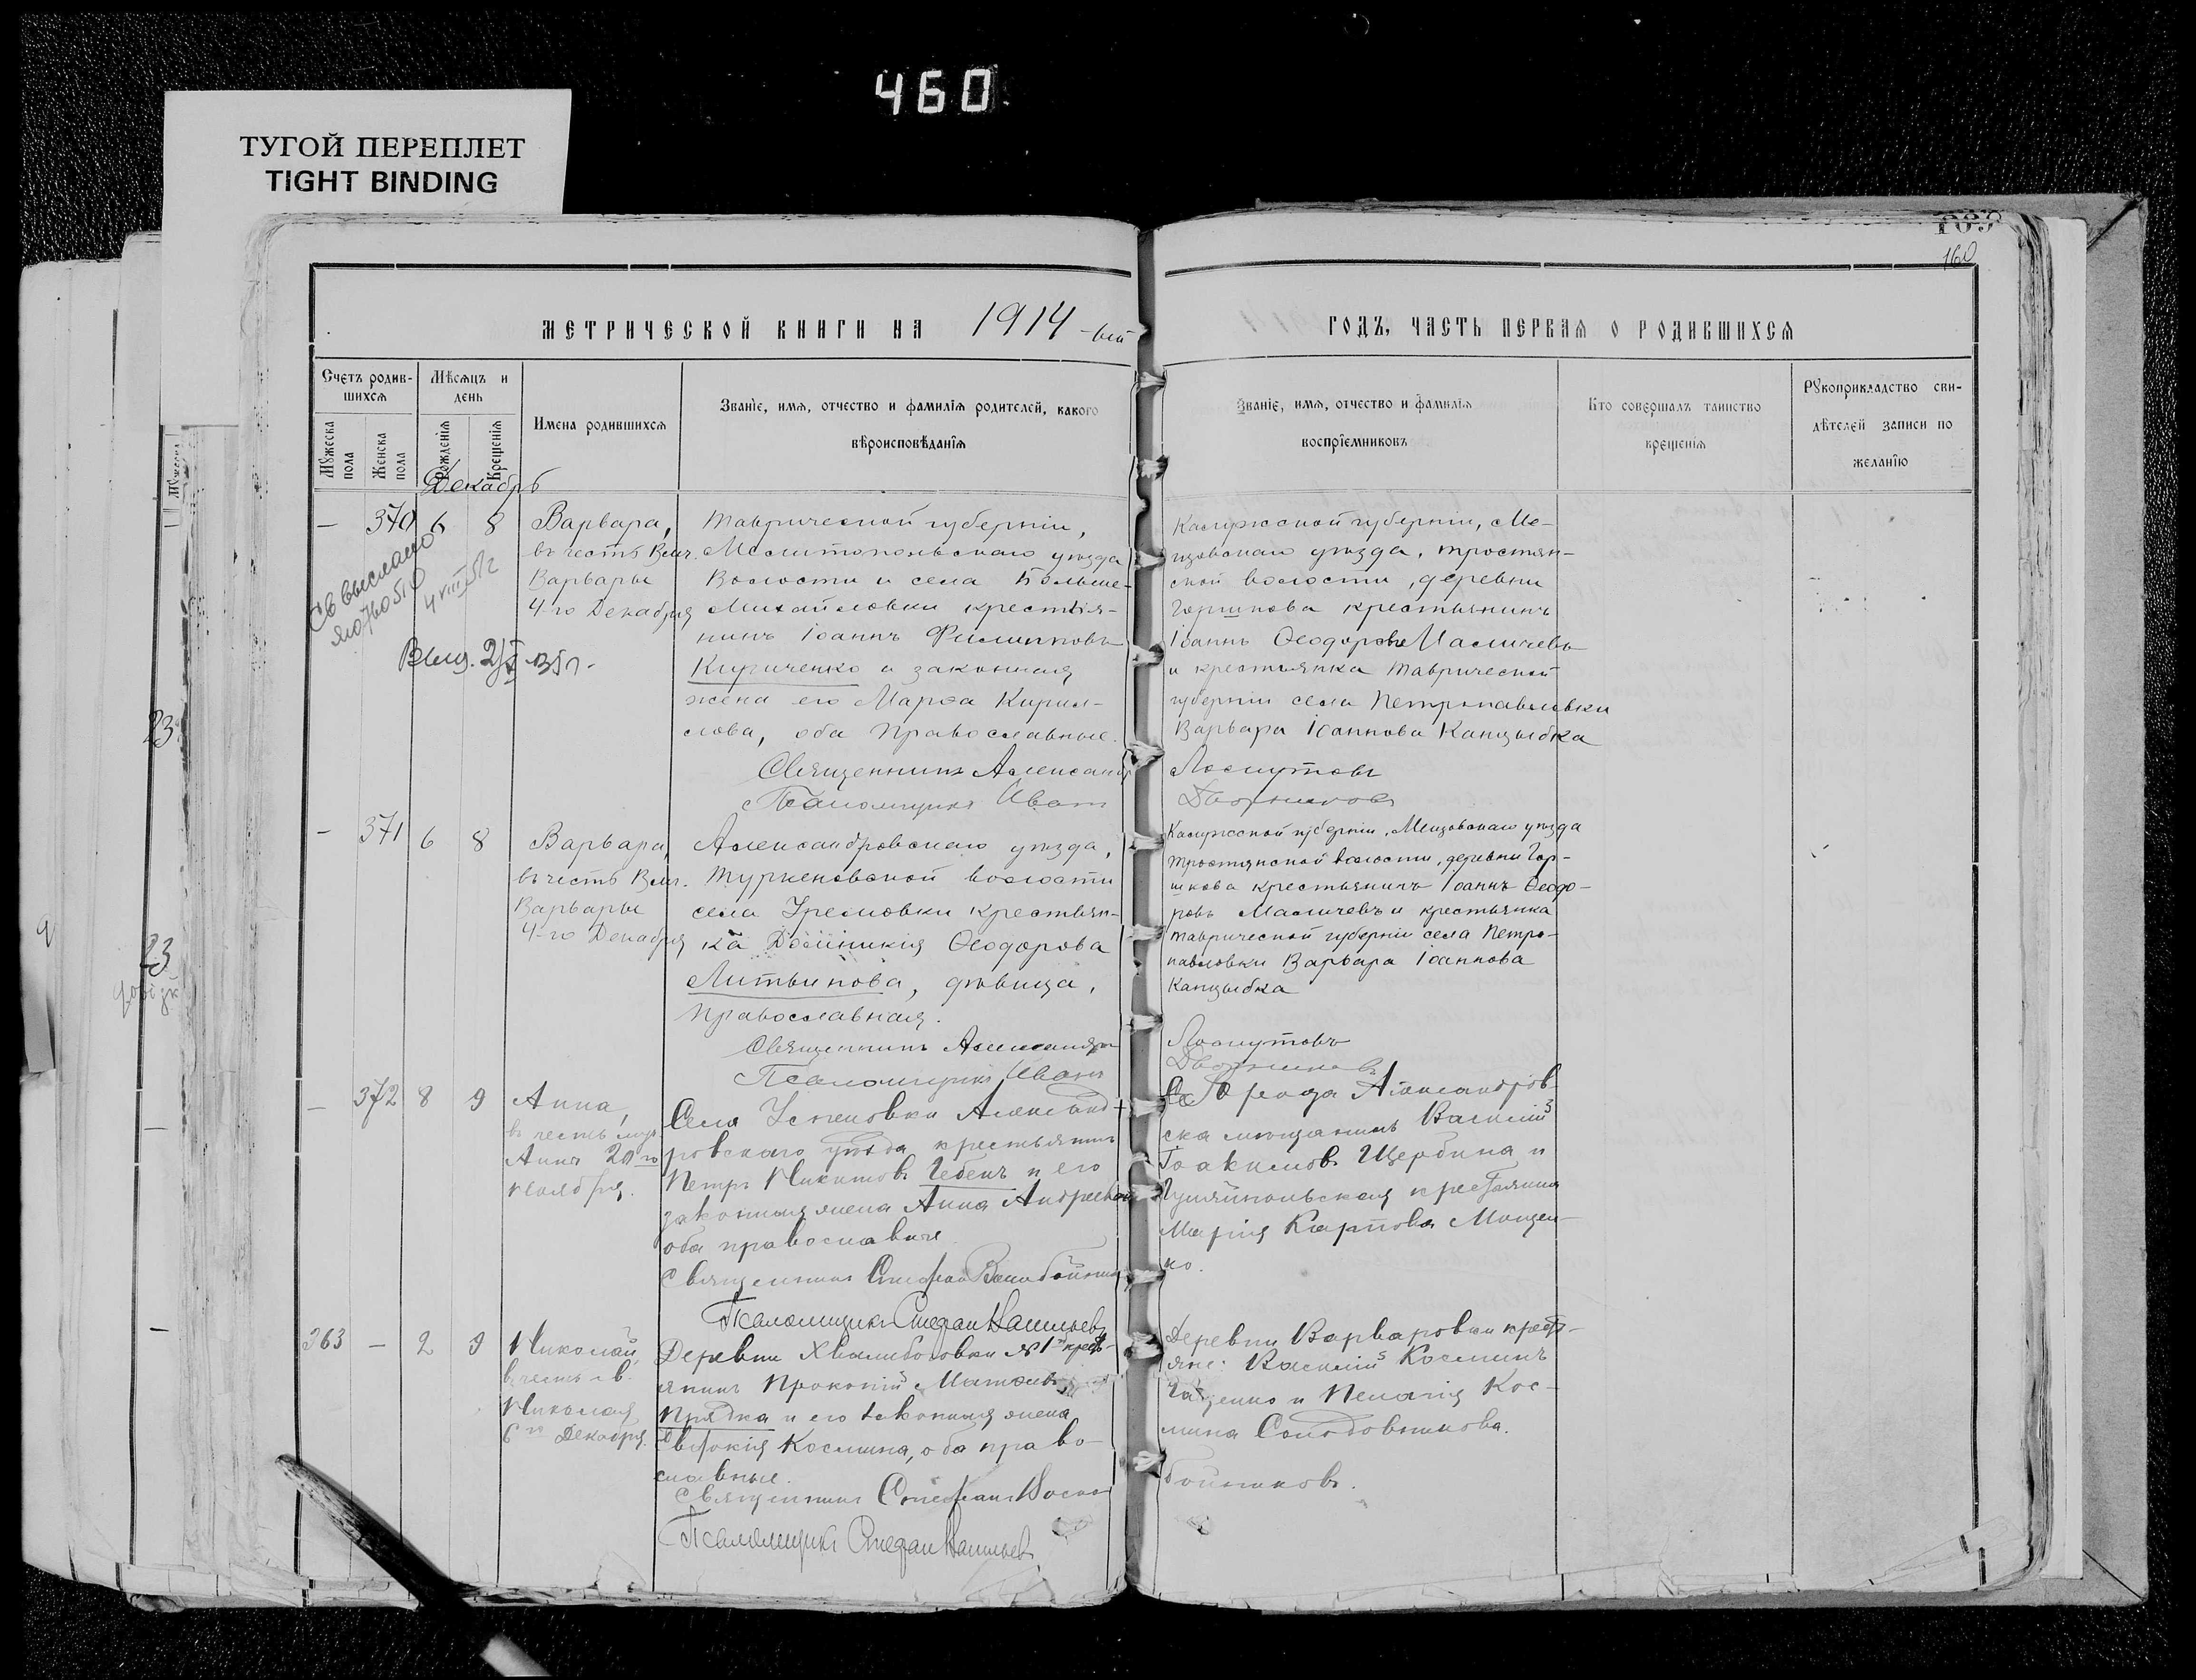 460
ТУГОЙ ПЕРЕПЛЕТ
TIGHT BINDING
160
МЕТРИЧЕСКОЙ КНИГИ НА 1914-ый ГОДЪ, ЧАСТЬ ПЕРВАЯ О РОДИВШИХСЯ
Счетъ родив-
шихся
Мѣсяцъ и
день
Мужеска пола
Женска пола
Рожденія
Крещенія
Имена родившихся
Званіе, имя, отчество и фамилія родителей, какого
вѣроисповѣданія
Званіе, имя, отчество и фамилія
воспріемниковъ
Кто совершалъ таинство
крещенія
Рукоприкладство сви-
дѣтелей записи по
желанію
Декабрь
— 370 6 8
Варвара,
въ честь Влмч.
Варвары
4-го Декабря
Таврической губерніи,
Мелитопольскаго уѣзда
Волости и села Больше-
Михайловки крестья-
нинъ Іоаннъ Филипповъ
Кириченко и законная
жена его Марѳа Кирил-
лова, оба православные.
Священникъ Александръ
Псаломщикъ Иванъ
Калужской губерніи, Ме-
щовскаго уѣзда,
ской волости, деревни
Горшкова крестьянинъ
Іоаннъ Ѳеодоровъ Масличевъ
и крестьянка Таврической
губерніи села Петропавловки
Варвара Іоаннова Канцыбка
Лоскутовъ
Дворниковъ
— 371 6 8
Варвара,
въ честь Влмч.
Варвары
4-го Декабря
Александровскаго уѣзда,
Туркеновской волости
села Успеновки крестьян-
ка Домникія Ѳеодорова
Литвинова, дѣвица,
православная.
Священникъ Александръ
Псаломщикъ Иванъ
Калужской губерніи, Мещовскаго уѣзда
волости, деревни Гор-
шкова крестьянинъ Іоаннъ Ѳеодо-
ровъ Масличевъ и крестьянка
Таврической губерніи села Петро-
павловки Варвара Іоаннова
Канцыбка
Лоскутовъ
Дворниковъ
— 372 8 9
Анна,
въ честь
Анны 20го
Ноября.
Села Успеновки Александ-
ровскаго уѣзда крестьянинъ
Петръ Никитовъ Чебенъ и его
законная жена Анна Андреева
оба православные
Священникъ Стефанъ
Псаломщикъ Стефанъ Васильевъ
Города Александров-
ска мѣщанинъ Василій
Іоакимовъ Щербина и
Гуляйпольская крестьянка
Марія Карпова Мищен-
ко.
363 — 2 9
Николай,
въ честь св.
Николая
6го Декабря.
Деревни Хвалибоговки №1 крест-
янинъ Прокопій
Прядка и его законная жена
Евфокія Космина, оба право-
славные.
Священникъ Стефанъ
Псаломщикъ Стефанъ Васильевъ
Деревни Варваровки крест-
яне: Василій Косминъ
и Пелагія Кос-
мина Солодовникова.